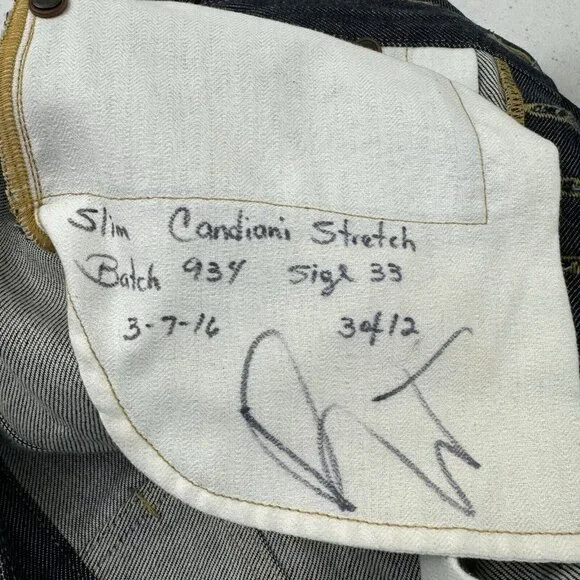 Slim Candiani Stretch
Batch 934 Size 33
3-7-16 3of12